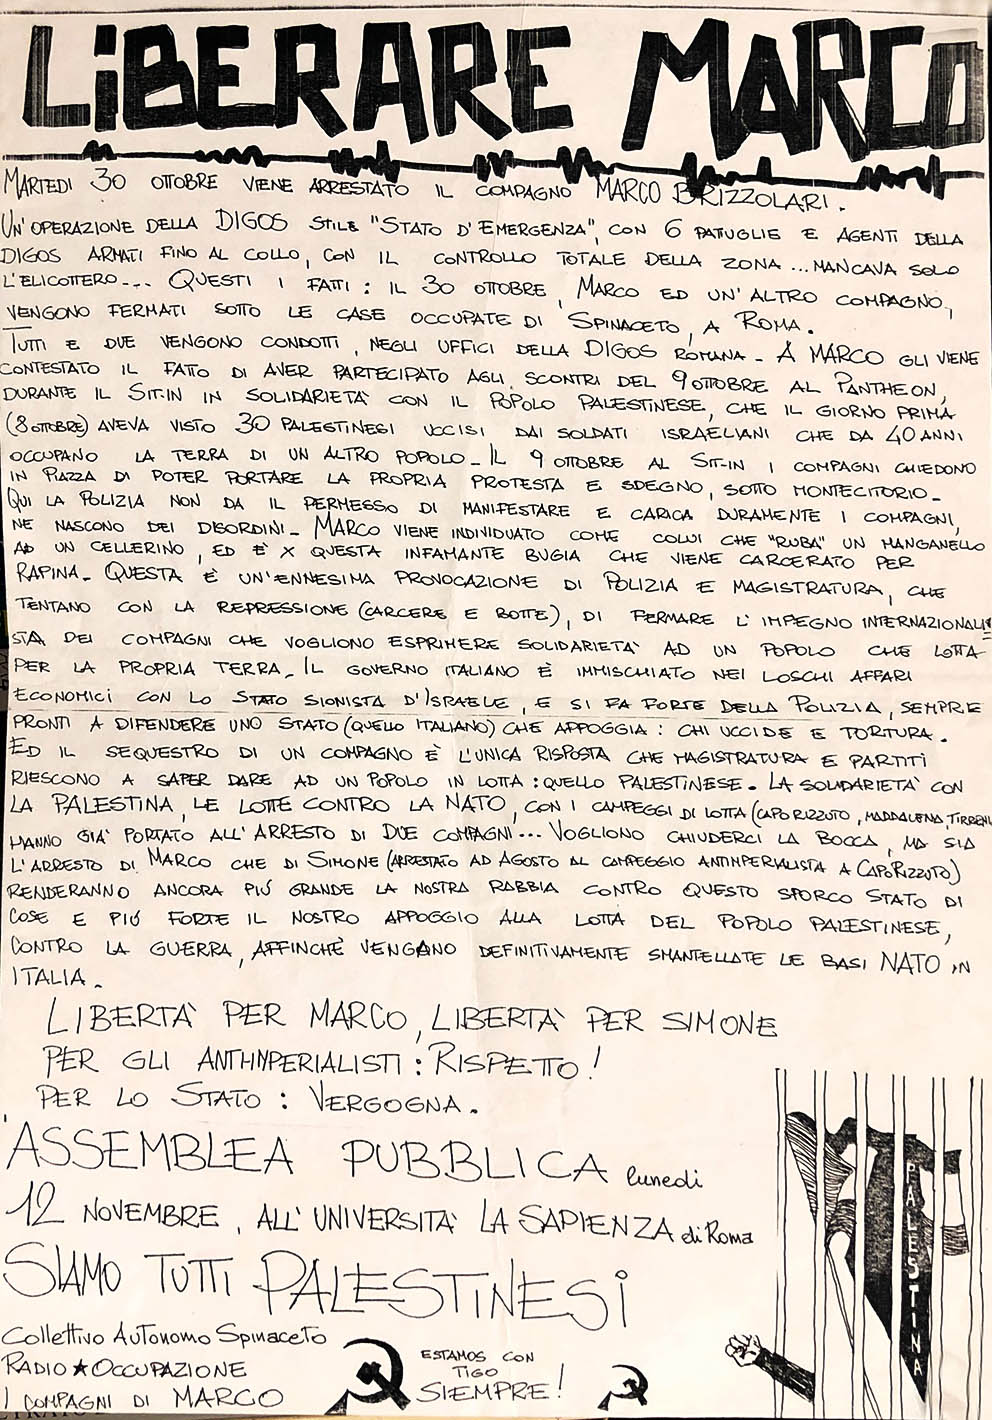 LiBERARE MARCO
MARTEDI 30 OTTOBRE VIENE ARRESTATO IL COMPAGNO MARCO BRIZZOLARI.
UN'OPERAZIONE DELLA DIGOS STILE "STATO D'EMERGENZA", CON 6 PATTUGLIE E AGENTI DELLA
DIGOS ARMATI FINO AL COLLO, CON IL CONTROLLO TOTALE DELLA ZONA... MANCAVA SOLO
L'ELICOTTERO... QUESTI I FATTI: IL 30 OTTOBRE, MARCO ED UN'ALTRO COMPAGNO,
VENGONO FERMATI SOTTO LE CASE OCCUPATE DI SPINACETO, A ROMA.
TUTTI E DUE VENGONO CONDOTTI, NEGLI UFFICI DELLA DIGOS ROMANA - A MARCO GLI VIENE
CONTESTATO IL FATTO DI AVER PARTECIPATO AGLI SCONTRI DEL 9 OTTOBRE AL PANTHEON,
DURANTE IL SIT-IN IN SOLIDARIETA' CON IL POPOLO PALESTINESE, CHE IL GIORNO PRIMA
(8 OTTOBRE) AVEVA VISTO 30 PALESTINESI UCCISI DAI SOLDATI ISRAELIANI CHE DA 40 ANNI
OCCUPANO LA TERRA DI UN ALTRO POPOLO - IL 9 OTTOBRE AL SIT-IN I COMPAGNI CHIEDONO
IN PIAZZA DI POTER PORTARE LA PROPRIA PROTESTA E SDEGNO, SOTTO MONTECITORIO -
QUI LA POLIZIA NON DA IL PERMESSO DI MANIFESTARE E CARICA DURAMENTE I COMPAGNI,
NE NASCONO DEI DISORDINI - MARCO VIENE INDIVIDUATO COME COLUI CHE "RUBA" UN MANGANELLO
AD UN CELLERINO, ED È X QUESTA INFAMANTE BUGIA CHE VIENE CARCERATO PER
RAPINA - QUESTA È UN'ENNESIMA PROVOCAZIONE DI POLIZIA E MAGISTRATURA, CHE
TENTANO CON LA REPRESSIONE (CARCERE E BOTTE), DI FERMARE L'IMPEGNO INTERNAZIONALI
STA DEI COMPAGNI CHE VOGLIONO ESPRIMERE SOLIDARIETA' AD UN POPOLO CHE LOTTA
PER LA PROPRIA TERRA - IL GOVERNO ITALIANO È IMMISCHIATO NEI LOSCHI AFFARI
ECONOMICI CON LO STATO SIONISTA D'ISRAELE, E SI FA FORTE DELLA POLIZIA, SEMPRE
PRONTI A DIFENDERE UNO STATO (QUELLO ITALIANO) CHE APPOGGIA: CHI UCCIDE E TORTURA.
ED IL SEQUESTRO DI UN COMPAGNO È L'UNICA RISPOSTA CHE MAGISTRATURA E PARTITI
RIESCONO A SAPER DARE AD UN POPOLO IN LOTTA: QUELLO PALESTINESE. LA SOLIDARIETÀ CON
LA PALESTINA, LE LOTTE CONTRO LA NATO, CON I CAMPEGGI DI LOTTA (CAPO RIZZUTO, MADDALENA,
HANNO GIA' PORTATO ALL'ARRESTO DI DUE COMPAGNI... VOGLIONO CHIUDERCI LA BOCCA, MA SIA
L'ARRESTO DI MARCO CHE DI SIMONE (ARRESTATO AD AGOSTO AL CAMPEGGIO ANTIMPERIALISTA A CAPO RIZZUTO)
RENDERANNO ANCORA PIÚ GRANDE LA NOSTRA RABBIA CONTRO QUESTO SPORCO STATO DI
COSE E PIÚ FORTE IL NOSTRO APPOGGIO ALLA LOTTA DEL POPOLO PALESTINESE,
CONTRO LA GUERRA, AFFINCHÈ VENGANO DEFINITIVAMENTE SMANTELLATE LE BASI NATO IN
ITALIA.
LIBERTÀ PER MARCO, LIBERTÀ PER SIMONE
PER GLI ANTIIMPERIALISTI: RISPETTO!
PER LO STATO: VERGOGNA.
ASSEMBLEA PUBBLICA lunedi
12 NOVEMBRE, ALL'UNIVERSITÀ LA SAPIENZA di Roma
SIAMO TUTTI PALESTINESI
Collettivo Autonomo Spinaceto
RADIO★OCCUPAZIONE
I COMPAGNI DI MARCO
ESTAMOS CON
TIGO
SIEMPRE!
PALESTINA